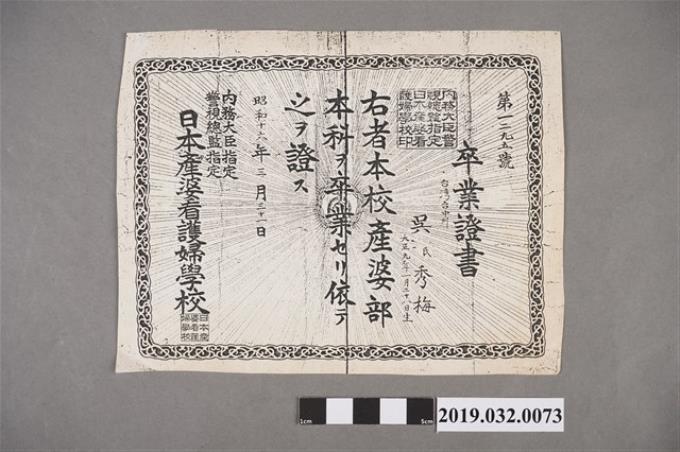 第一二九五號
卒業證書
台湾台中州
吳氏秀梅
大正九年一月二十八日生
內務大臣警
視總監指定
日本產婆看
護婦學校印
右者本校產婆部
本科ヲ卒業セリ依テ
之ヲ證ス
昭和十六年三月三十一日
內務大臣指定
警視總監指定
日本產婆看護婦學校
日本產
婆看護
婦學校
1cm
5cm
2019.032.0073